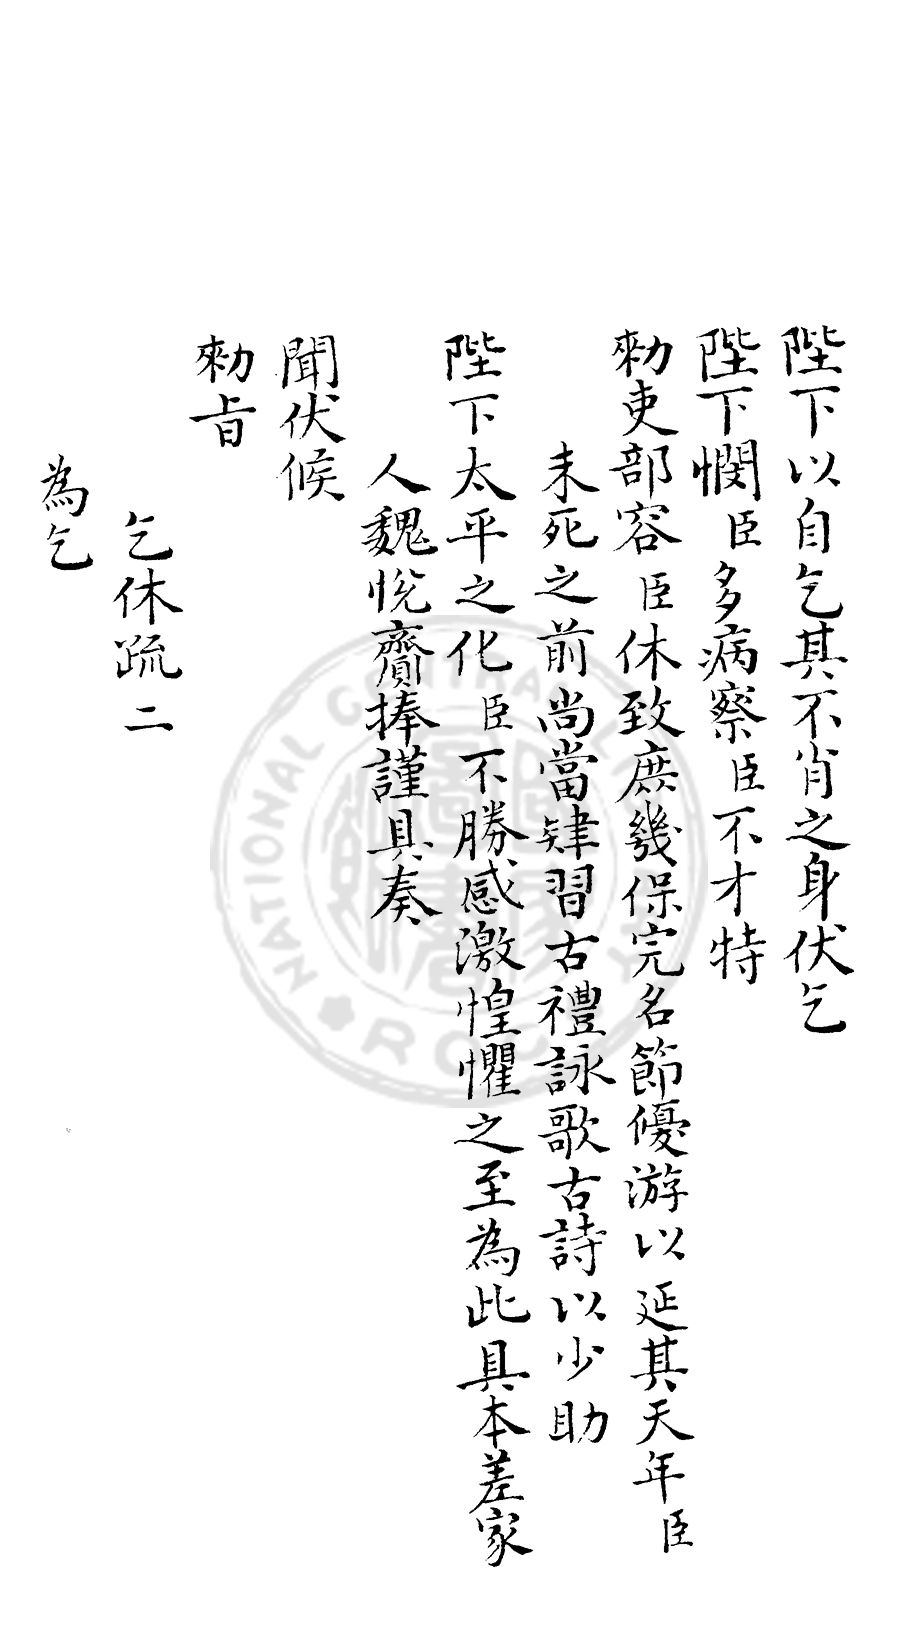 陛下以自乞其不肖之身伏乞
陛下憫臣多病察臣不才特
勑吏部容臣休致庶幾保完名節優游以延其天年臣
未死之前尚當肄習古禮詠歌古詩以少助
陛下太平之化臣不勝感激惶懼之至為此具本差家
人魏悅齎捧謹具奏
聞伏候
勑旨
乞休疏二
為乞
NATIONAL CENTRAL LIBRARY
R.O.C.